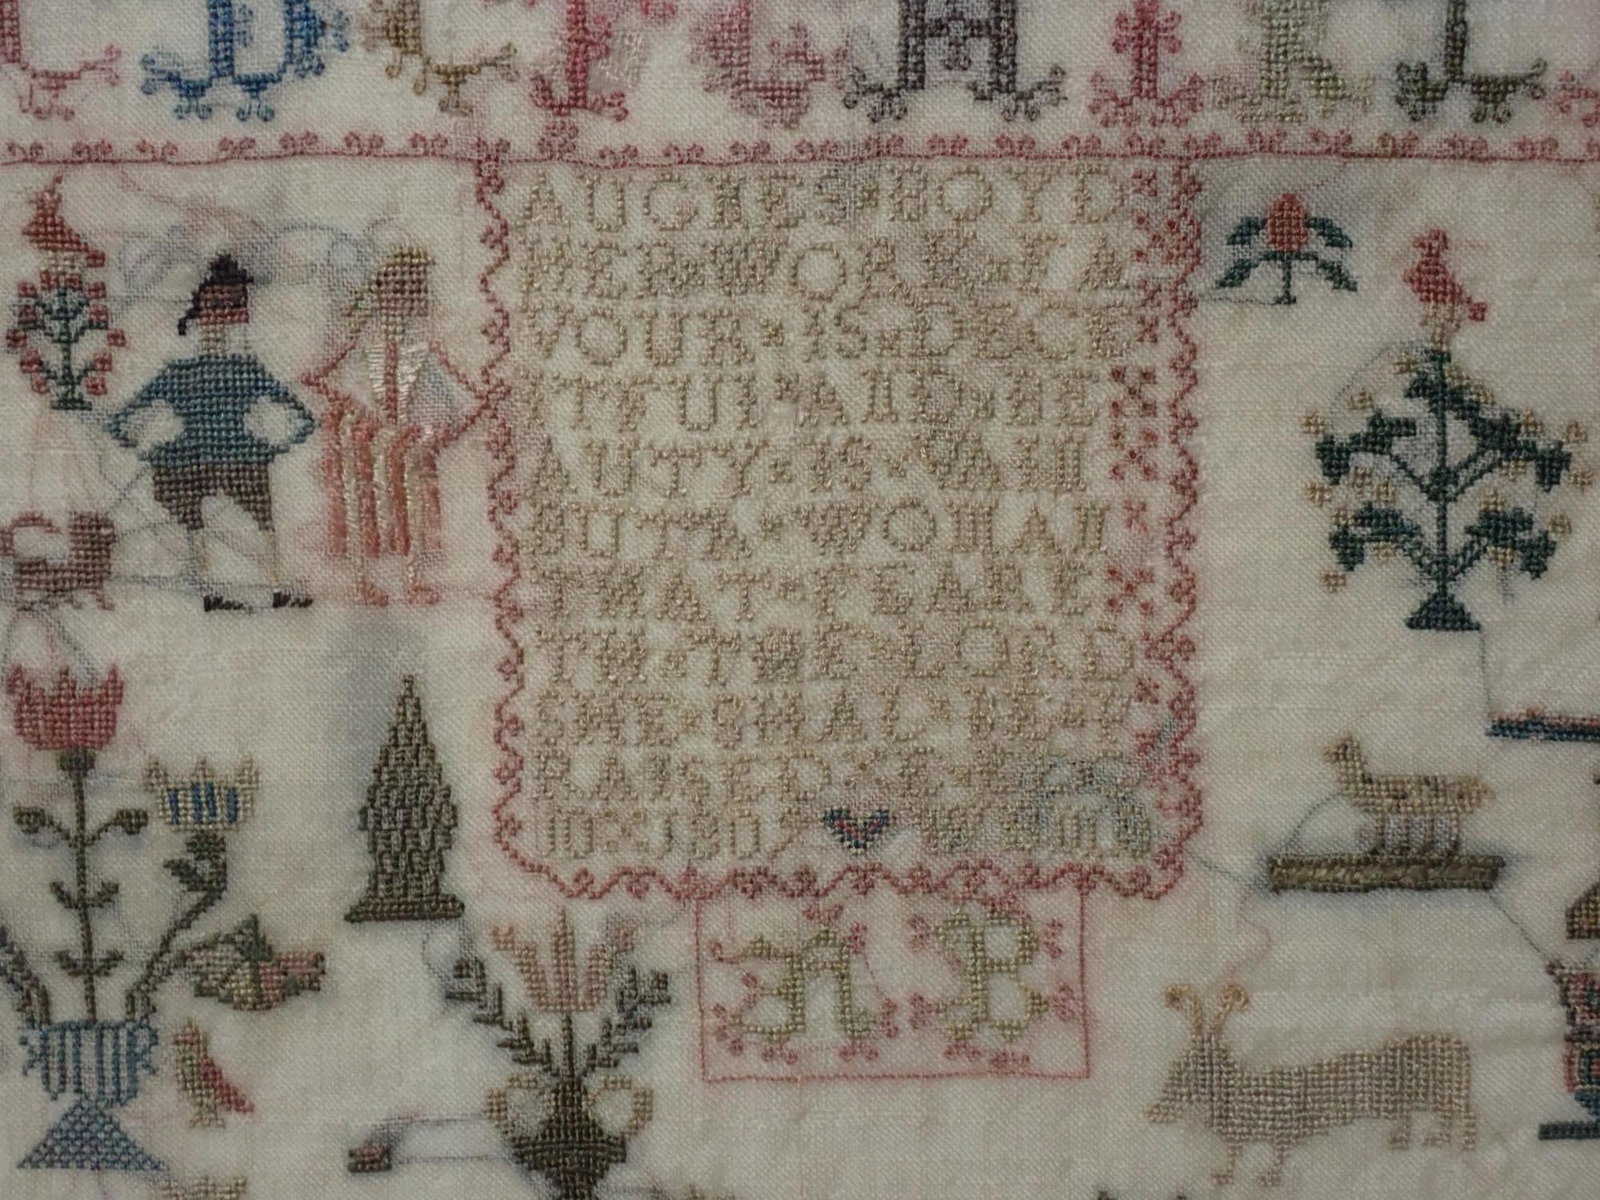 AUGNES·BOYD
HER·WORK·FA
VOUR·IS·DECE
ITFUL·AND·BE
AUTY·IS·VAIN
BUT·A·WOMAN
THAT·FEARE
TH·THE·LORD
SHE·SHAL·BE·P
RAISED
A B